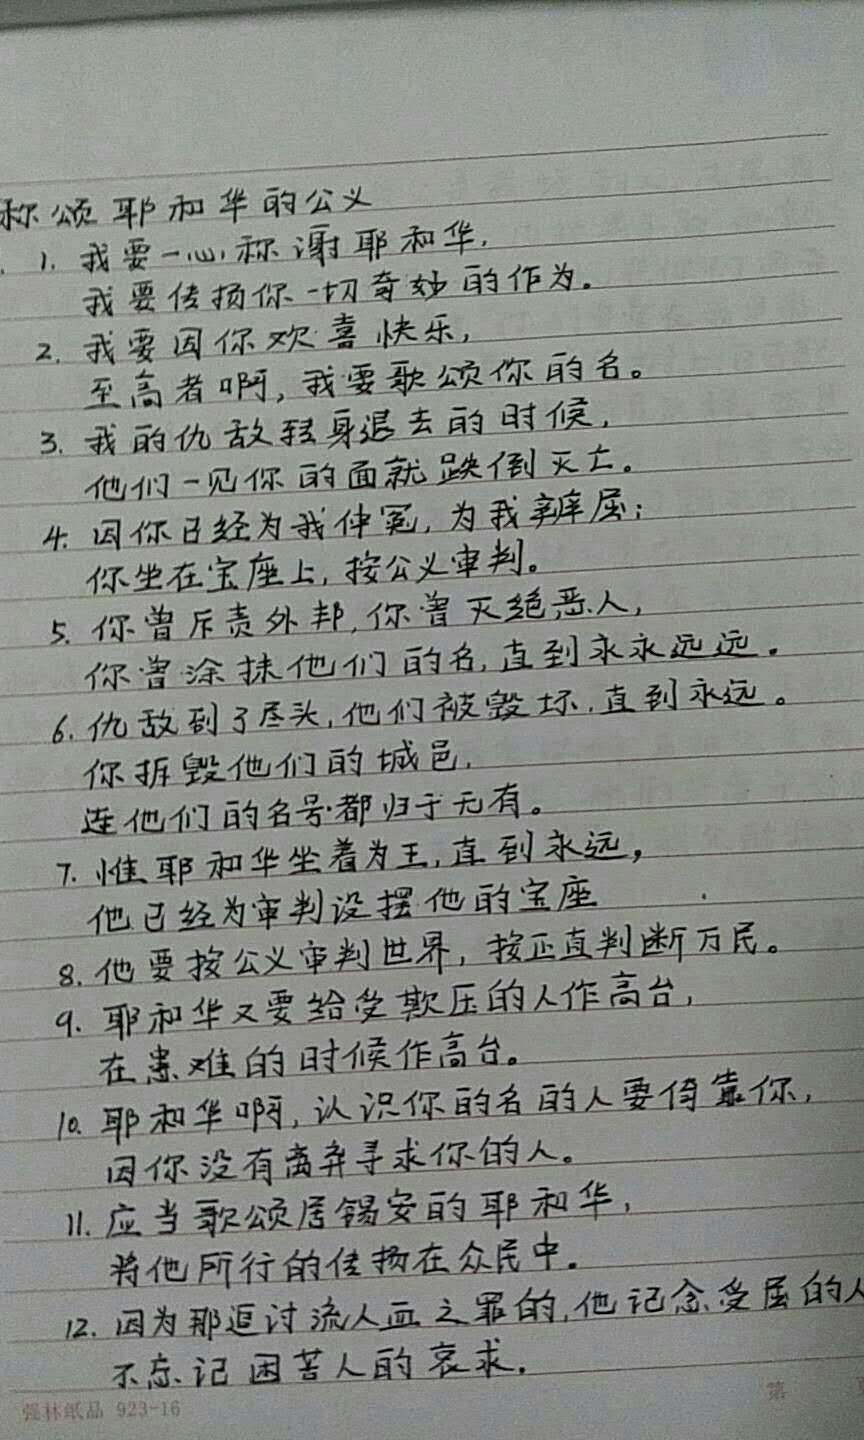 称颂耶和华的公义
1. 我要一心称谢耶和华,
我要传扬你一切奇妙的作为。
2. 我要因你欢喜快乐,
至高者啊,我要歌颂你的名。
3. 我的仇敌转身退去的时候,
他们一见你的面就跌倒灭亡。
4. 因你已经为我伸冤,为我辨屈;
你坐在宝座上,按公义审判。
5. 你曾斥责外邦,你曾灭绝恶人,
你曾涂抹他们的名,直到永永远远。
6. 仇敌到了尽头,他们被毁坏,直到永远。
你拆毁他们的城邑,
连他们的名号都归于无有。
7. 惟耶和华坐着为王,直到永远,
他已经为审判设摆他的宝座
8. 他要按公义审判世界,按正直判断万民。
9. 耶和华又要给受欺压的人作高台,
在患难的时候作高台。
10. 耶和华啊,认识你的名的人要倚靠你,
因你没有离弃寻求你的人。
11. 应当歌颂居锡安的耶和华,
将他所行的传扬在众民中。
12. 因为那追讨流人血之罪的,他记念受屈的人
不忘记困苦人的哀求。
强林纸品 923-16
第